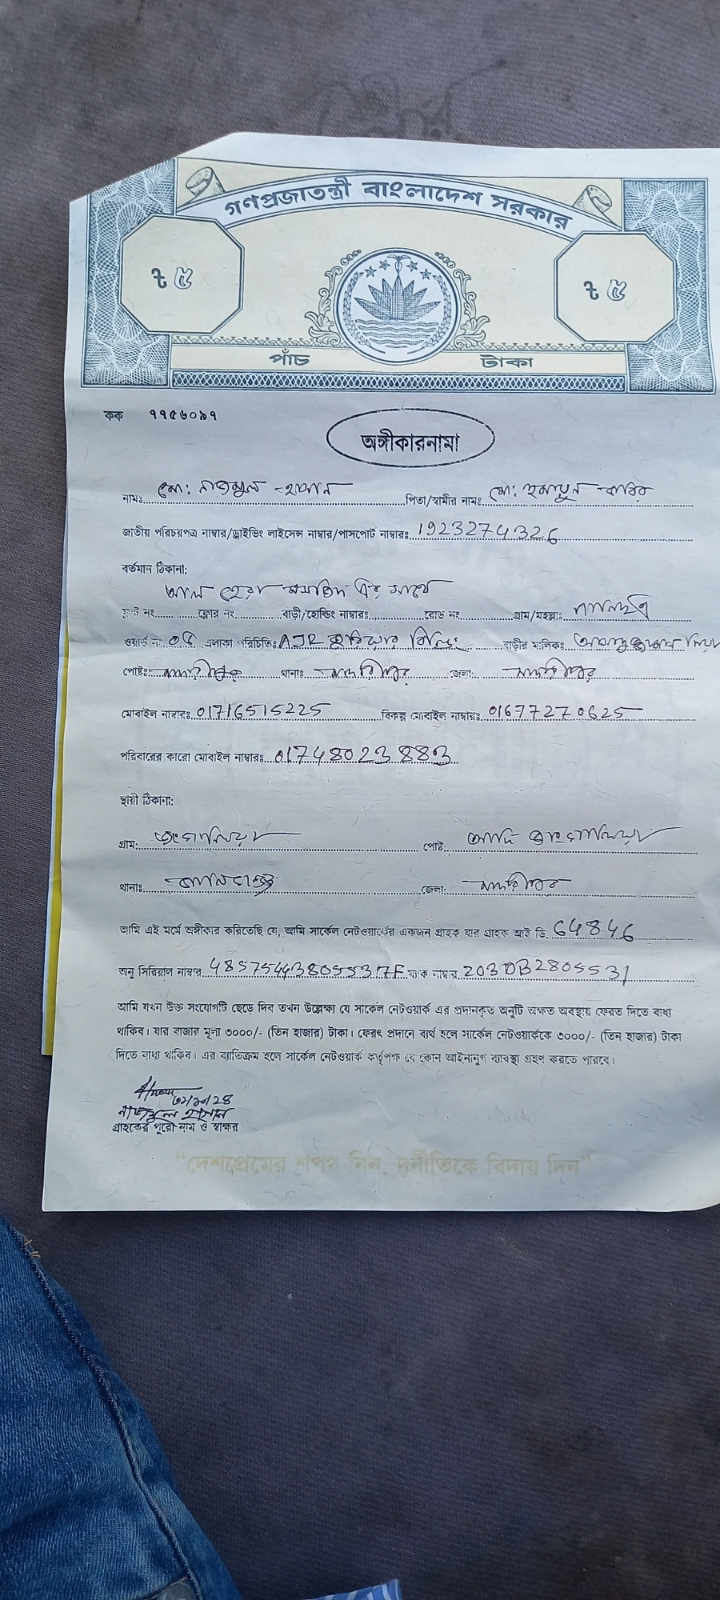 গণপ্রজাতন্ত্রী বাংলাদেশ সরকার
৳ ৫ ৳ ৫
পাঁচ টাকা
কক ৭৭৫৬০৯৭
অঙ্গীকারনামা
নামঃ মো: নাজমুল হাসান পিতা/স্বামীর নামঃ মো: হুমায়ুন কবির
জাতীয় পরিচয়পত্র নাম্বার/ড্রাইভিং লাইসেন্স নাম্বার/পাসপোর্ট নাম্বারঃ 1923274326
বর্তমান ঠিকানা:
আল হেরা মসজিদ এর সাথে
ফ্লাট নং ফ্লোর নং বাড়ী/হোল্ডিং নাম্বারঃ রোড নং গ্রাম/মহল্লাঃ
ওয়ার্ড নং 05 এলাকা পরিচিতিঃ AJR কুরিয়ার বাড়ীর মালিকঃ
পোষ্টঃ মাদারীপুর থানাঃ মাদারীপুর জেলাঃ মাদারীপুর
মোবাইল নাম্বারঃ 01716515225 বিকল্প মোবাইল নাম্বারঃ 01677270625
পরিবারের কারো মোবাইল নাম্বারঃ 01748023883
স্থায়ী ঠিকানা:
গ্রাম: পোষ্ট:
থানাঃ জেলাঃ মাদারীপুর
আমি এই মর্মে অঙ্গীকার করিতেছি যে, আমি সার্কেল নেটওয়ার্কের একজন গ্রাহক যার গ্রাহক আই ডি 64846
অনু সিরিয়াল নাম্বার ম্যাক নাম্বার 203DB2805531
আমি যখন উক্ত সংযোগটি ছেড়ে দিব তখন উল্লেক্ষ্য যে সার্কেল নেটওয়ার্ক এর প্রদানকৃত অনুটি অক্ষত অবস্থায় ফেরত দিতে বাধ্য
থাকিব। যার বাজার মূল্য ৩০০০/- (তিন হাজার) টাকা। ফেরৎ প্রদানে ব্যর্থ হলে সার্কেল নেটওয়ার্ককে ৩০০০/- (তিন হাজার) টাকা
দিতে বাধ্য থাকিব। এর ব্যতিক্রম হলে সার্কেল নেটওয়ার্ক কর্তৃপক্ষ যে কোন আইনানুগ ব্যবস্থা গ্রহণ করতে পারবে।
নাজমুল হাসান
গ্রাহকের পুরো নাম ও স্বাক্ষর
"দেশপ্রেমের শপথ নিন, দুর্নীতিকে বিদায় দিন"